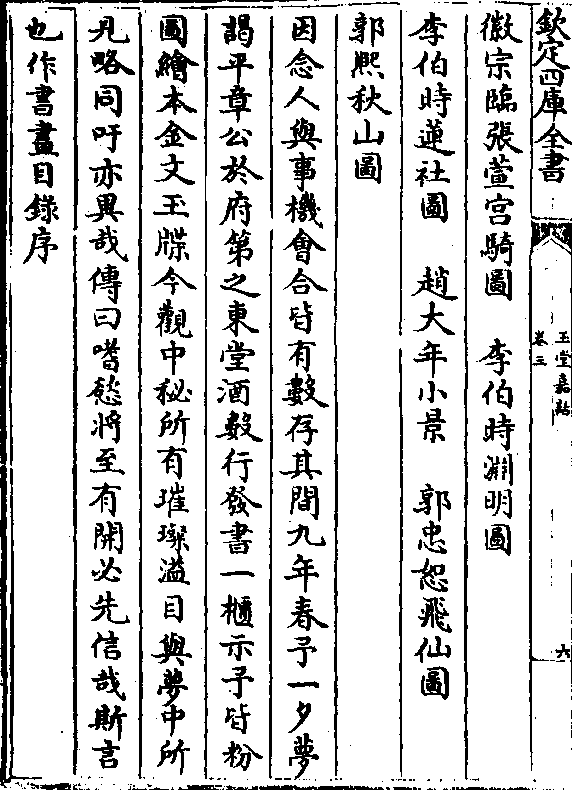 欽定四庫全書
玉堂嘉話
卷三
六
徽宗臨張萱宫騎圖 李伯時淵明圖
李伯時蓮社圖 趙大年小景 郭忠恕飛仙圖
郭熈秋山圖
因念人與事機會合皆有數存其間九年春予一夕夢
謁平章公於府第之東堂酒數行發書一櫃示予皆粉
圖繪本金文玉牒今觀中秘所有璀璨溢目與夢中所
見略同吁亦異哉傳曰嗜慾將至有開必先信哉斯言
也作書畫目錄序